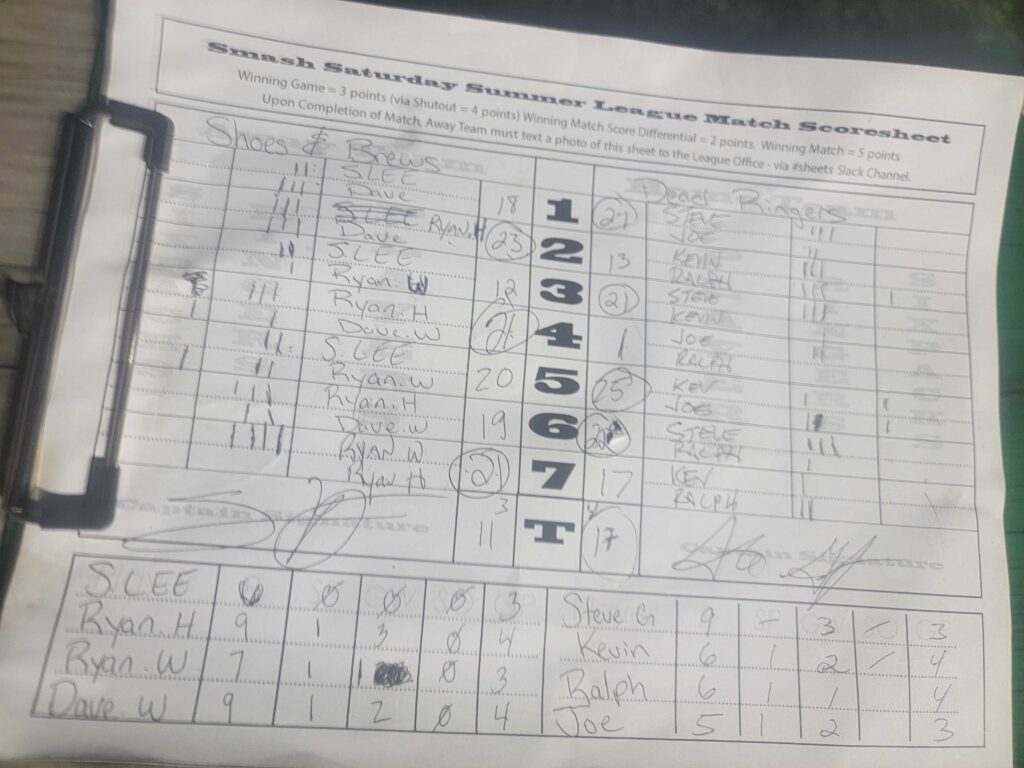 Smash Saturday Summer League Match Scoresheet
Winning Game = 3 points (via Shutout = 4 points) Winning Match Score Differential = 2 points. Winning Match = 5 points
Upon Completion of Match, Away Team must text a photo of this sheet to the League Office - via #sheets Slack Channel.
Shoes & Brews
Dead Ringers
S.LEE
Dave 18 1 21 STEVE
JOE
Ryan.H
Dave 23 2 13 KEVIN
RALPH
S.LEE
Ryan W 12 3 21 STEVE
KEVIN
Ryan.H
Dave.W 21 4 1 JOE
RALPH
S.LEE
Ryan.W 20 5 25 KEV
JOE
Ryan.H
Dave.W 19 6 STEVE
RALPH
RYAN W
Ryan H 21 7 17 KEV
RALPH
3 4
11 T 17
Captain Signature Captain Signature
S.LEE Ø Ø Ø 3 Steve G 9 3 3
Ryan.H 9 1 3 Ø 4 Kevin 6 1 2 4
Ryan.W 7 1 1 Ø 3 Ralph 6 1 1 4
Dave.W 9 1 2 Ø 4 Joe 5 1 2 3